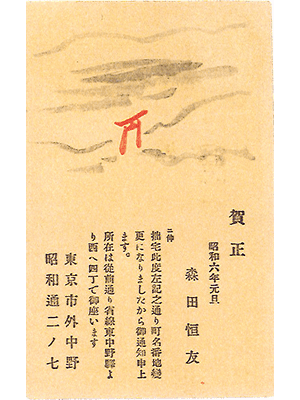 賀正
昭和六年元旦
森田恒友
二伸
拙宅此度左記之通り町名番地變
更になりましたから御通知申上
ます。
所在は從前通り省線東中野驛よ
り西へ四丁で御座います
東京市外中野
昭和通二ノ七